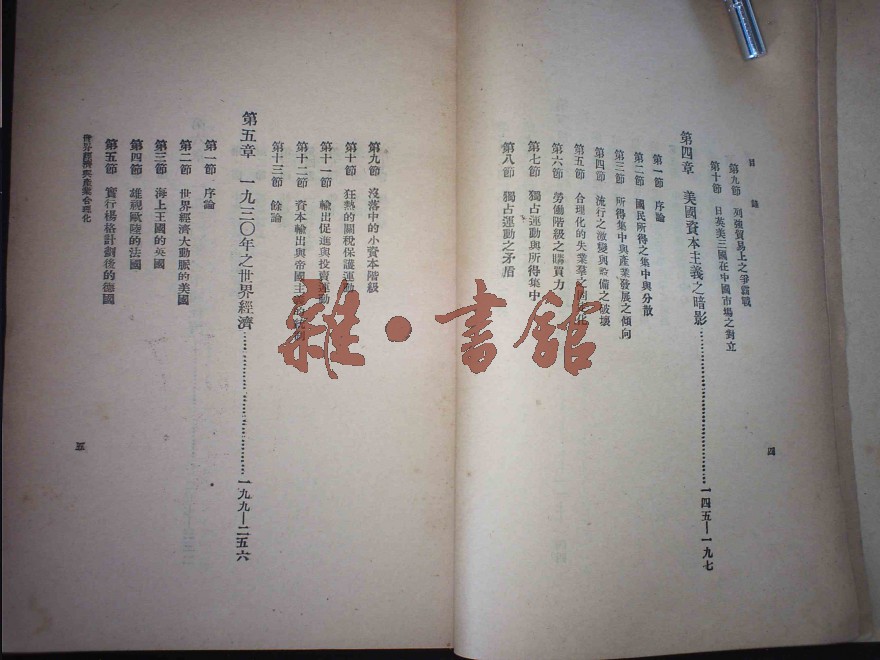 目錄
第九節 列強貿易上之爭霸戰
第十節 日英美三國在中國市場之對立
第四章 美國資本主義之暗影……一四五—一九七
第一節 序論
第二節 國民所得之集中與分散
第三節 所得集中與產業發展之傾向
第四節 流行之激變與設備之破壞
第五節 合理化的失業羣之固定化
第六節 勞働階級之購買力
第七節 獨占運動與所得集中
第八節 獨占運動之矛盾
四
第九節 沒落中的小資本階級
第十節 狂熱的關稅保護運動
第十一節 輸出促進與投賣運動
第十二節 資本輸出與帝國主義的
第十三節 餘論
第五章 一九三〇年之世界經濟……一九九—二五六
第一節 序論
第二節 世界經濟大動脈的美國
第三節 海上王國的英國
第四節 雄視歐陸的法國
第五節 實行楊格計劃後的德國
世界經濟與產業合理化
五
雜·書館